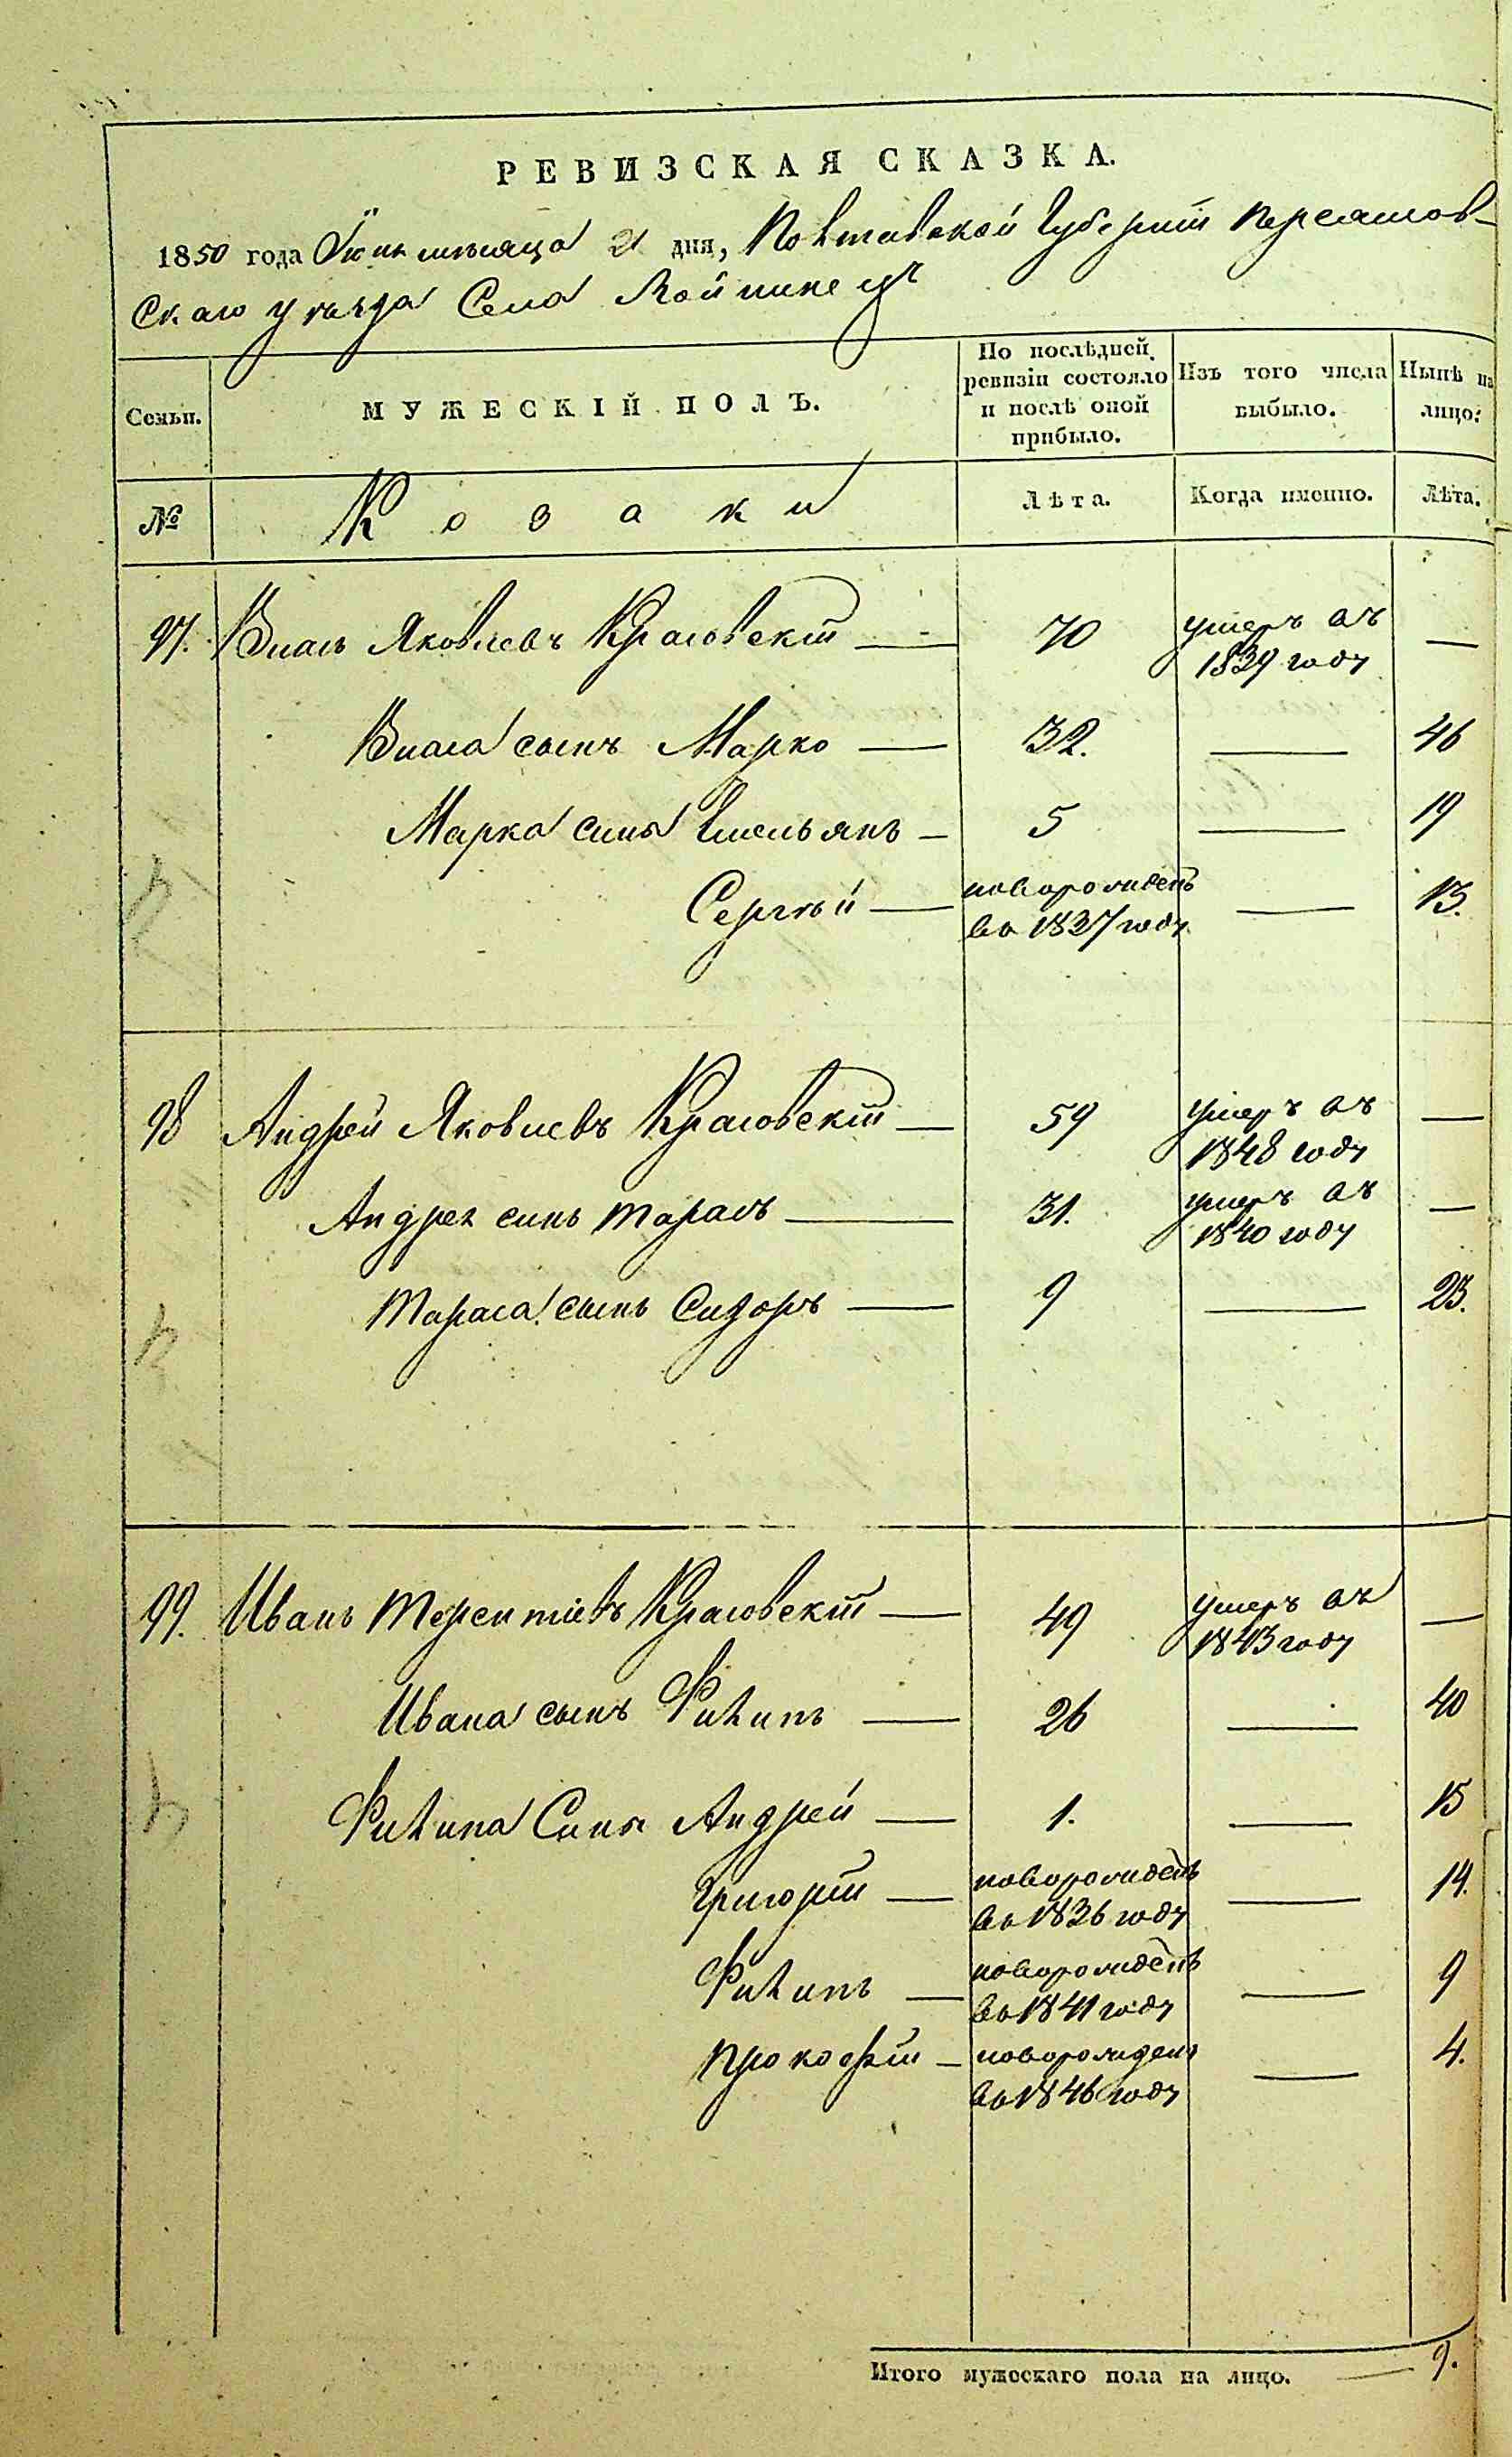 РЕВИЗСКАЯ СКАЗКА.
1850 года Іюня мѣсяца 21 дня, Полтавской Губерніи Переяслов-
скаго уѣзда Села Войтинецъ
Семьи.
МУЖЕСКІЙ ПОЛЪ.
По послѣдней ревизіи состояло и послѣ оной прибыло.
Изъ того числа выбыло.
Нынѣ на лицо.
№
Козаки
Лѣта.
Когда именно.
Лѣта.
97. Власъ Яковлевъ Красовскій — 70 умеръ въ 1839 году —
Власа сынъ Марко — 32. — 46
Марка сыны Емельянъ — 5 — 19
Сергѣй — новорожденъ въ 1837 году — 13.
98 Андрей Яковлевъ Красовскій — 59 умеръ въ 1848 году —
Андрея сынъ Тарасъ — 31. умеръ въ 1840 году —
Тараса сынъ Сидоръ — 9 — 23.
99. Иванъ Терентіевъ Красовскій — 49 умеръ въ 1843 году —
Ивана сынъ Филипъ — 26 — 40
Филипа Сыны Андрей — 1. — 15
Григорій — новорожденъ въ 1836 году — 14.
Филипъ — новорожденъ въ 1841 году — 9
Прокофій — новорожденъ въ 1846 году — 4.
Итого мужескаго пола на лицо. — 9.